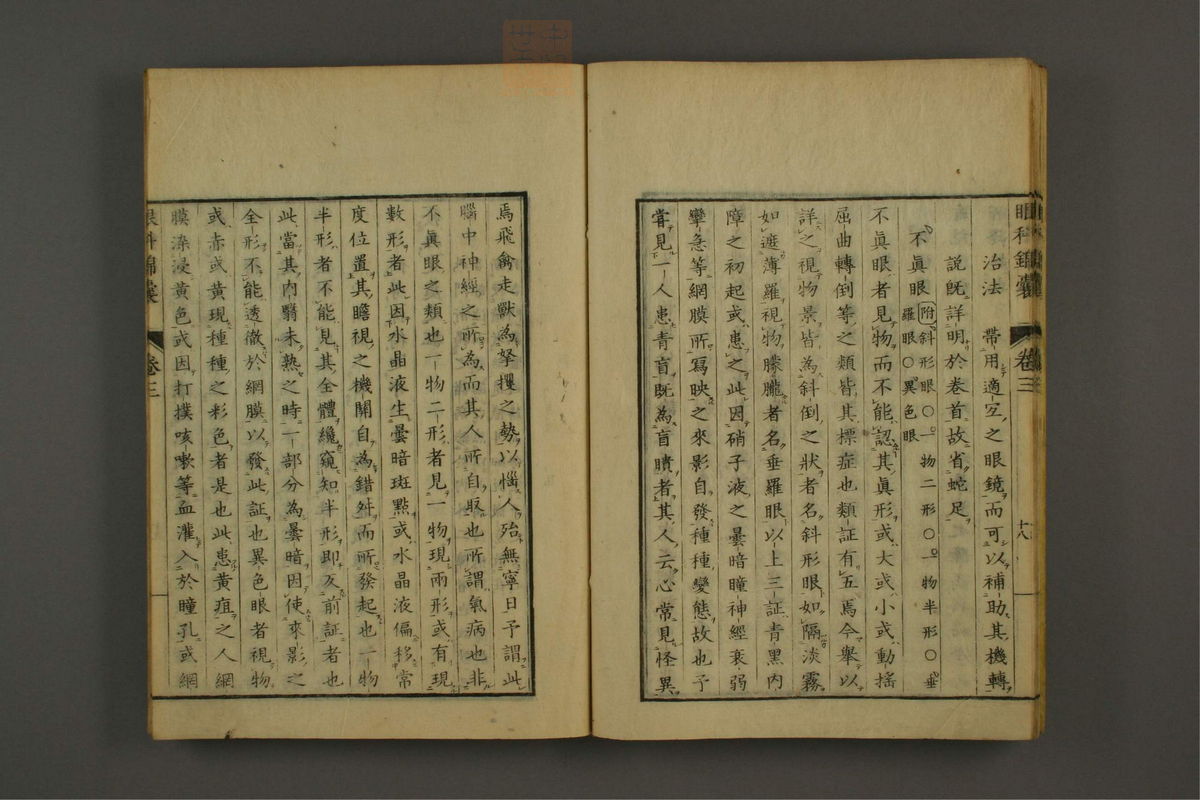 眼科錦囊 卷三 十八
治法 帶用適宜之眼鏡而可以補助其機轉
說既詳明於卷首故省蛇足
不眞眼 附斜形眼〇一物二形〇一物半形〇垂羅眼〇異色眼
不眞眼者見物而不能認其眞形或大或小或動搖
屈曲轉倒等之類皆其標症也類証有五焉今舉以
詳之視物景皆為斜倒之狀者名斜形眼如隔淡霧
如遮薄羅視物朦朧者名垂羅眼以上三証青黑內
障之初起或患之此因硝子液之曇暗瞳神經衰弱
攣急等網膜所寫映之來影自發種種變態故也予
甞見一人患青盲既為盲瞶者其人云心常見怪異
焉飛禽走獸為拏攫之勢以惱人殆無寧日予謂此
腦中神經之所為而其人所自取也所謂氣病也非
不眞眼之類也一物二形者見一物現兩形或有現
數形者此因水晶液生曇暗斑點或水晶液偏移常
度位置其瞻視之機關自為錯舛而所發起也一物
半形者不能見其全體纔窺知半形即亥前証者也
此當其內翳未熟之時一部分為曇暗因使來影之
全形不能透徹於網膜以發此証也異色眼者視物
或赤或黃現種種之彩色者是也此患黃疸之人網
膜染浸黃色或因打撲咳嗽等血灌入於瞳孔或網
眼科錦囊 卷三